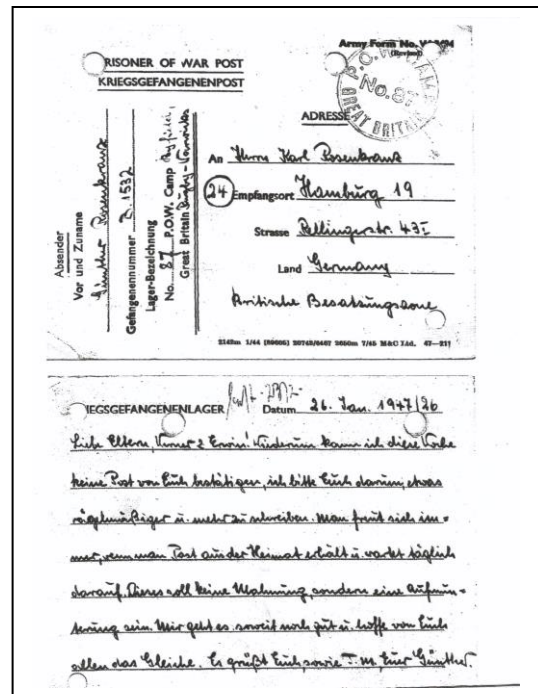 Army Form No.
(Revised)
RISONER OF WAR POST
KRIEGSGEFANGENENPOST
P.O.W. CAMP
No. 87
GREAT BRITAIN
ADRESSE
An Herrn Karl Rosenkranz
24 Empfangsort Hamburg 19
Strasse 43I
Land Germany
britische Besatzungszone
Absender
Vor und Zuname
Günther Rosenkranz
Gefangenennummer B. 1532
Lager-Bezeichnung
No. 87 P.O.W. Camp
Great Britain Rugby-
M&C Ltd. 47—217
IEGSGEFANGENENLAGER Datum 26. Jan. 1947/26
Liebe Eltern, Werner & Erwin! Wiederum kann ich diese Woche
keine Post von Euch bestätigen, ich bitte Euch darum, etwas
regelmäßiger u. mehr zu schreiben. Man freut sich im-
mer, wenn man Post aus der Heimat erhält u. wartet täglich
darauf. Dieses soll keine Mahnung, sondern eine Aufmun-
terung sein. Mir geht es soweit noch gut u. hoffe von Euch
allen das Gleiche. Es grüßt Euch, sowie T. M. Euer Günther.